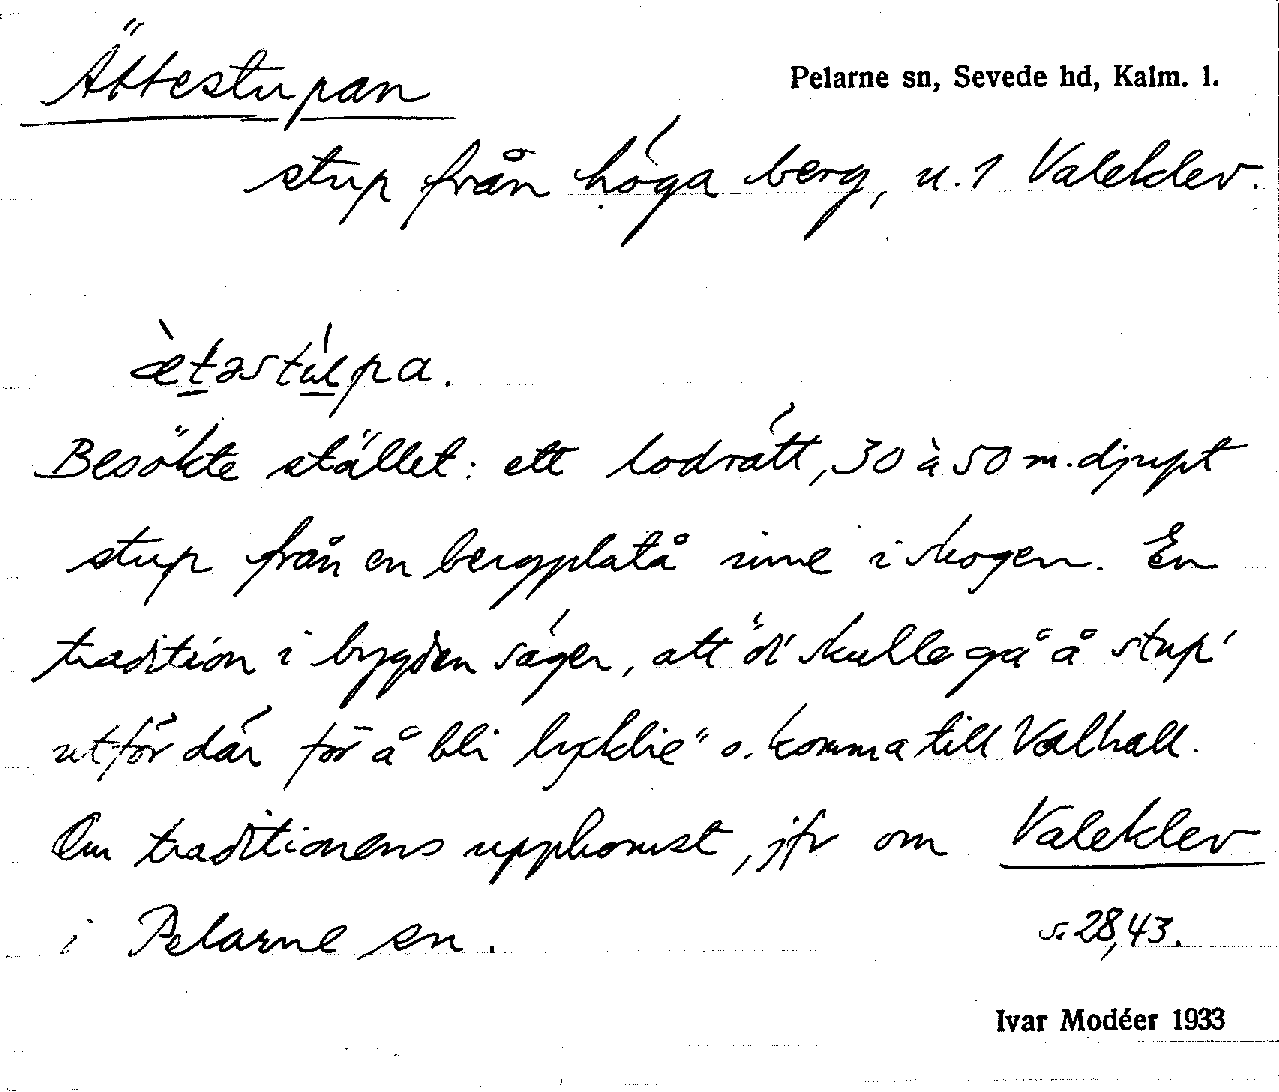 Ättestupan
Pelarne sn, Sevede hd, Kalm. l.
stup från höga berg, u. 1 Valeklev.
æ̀təstúpa.
Besökte stället: ett lodrätt, 30 à 50 m. djupt
stup från en bergplatå inne i skogen. En
tradition i bygden säger, att "di skulle gå å stup'
utför där för å bli lycklie" o. komma till Valhall.
Om traditionens uppkomst, jfr om Valeklev
i Pelarne sn. s. 28, 43.
Ivar Modéer 1933